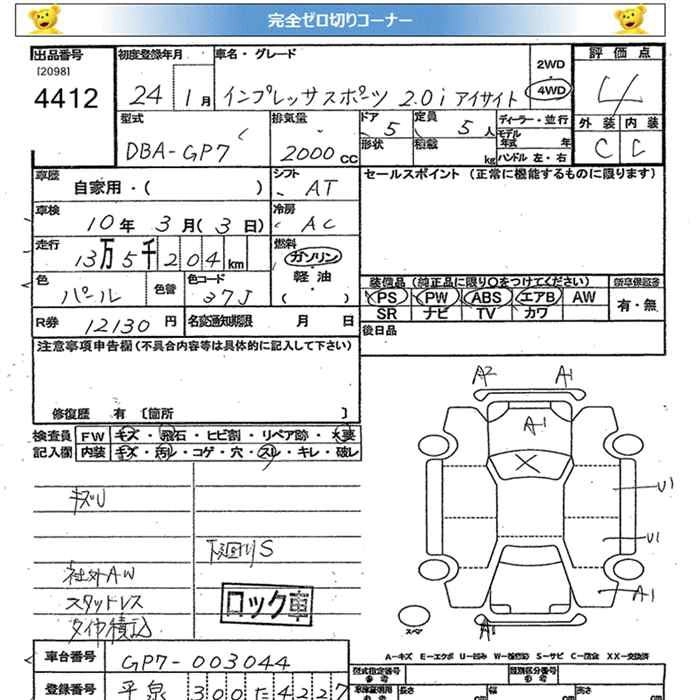 完全ゼロ切りコーナー
出品番号 初度登録年月 車名・グレード 2WD 評価点
[2098] 4WD
4412 24 1月 インプレッサスポーツ 2.0i アイサイト 4
型式 排気量 ドア 5 定員 5人 ディーラー・並行 外装 内装
DBA-GP7 2000cc 形状 積載 kg モデル年式 年 C C
ハンドル 左・右
車歴 自家用・( ) シフト AT セールスポイント(正常に機能するものに限ります)
車検 10年 3月(3日) 冷房 AC
走行 13万5千204km 燃料 ガソリン
軽油
( )
色 パール 色替 色コード 37J 装備品(純正品に限り○をつけてください) 新車保証書
PS PW ABS エアB AW 有・無
SR ナビ TV カワ
R券 12130円 名変通知期限 月 日 後日品
注意事項申告欄(不具合内容等は具体的に記入して下さい)
修復歴 有 〔箇所 〕
検査員 FW キズ・飛石・ヒビ割・リペア跡・×要
記入欄 内装 キズ・汚れ・コゲ・穴・スレ・キレ・破レ
A2 A1
A-1
キズU
U1
下廻りS
U1
社外AW
スタッドレス
タイヤ積込
A1
ロック車
スペア
A1
A-キズ E-エクボ U-凹み W-補修跡 S-サビ C-腐食 XX-交換済
車台番号 GP7-003044 型式指定番号 類別区分番号
登録番号 平泉 300 た 4227 長さ 幅 高さ